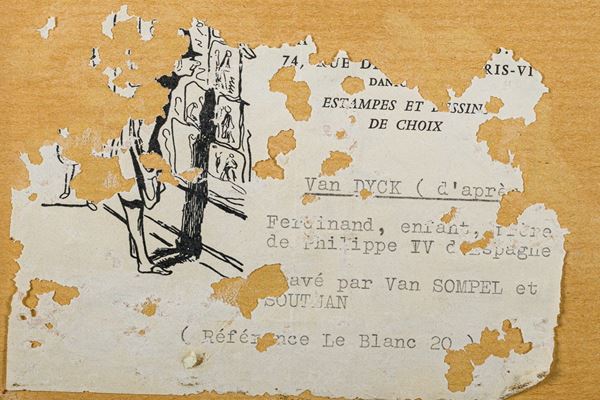 74, RUE D RIS-VI
DAN
ESTAMPES ET DESSINS
DE CHOIX
Van DYCK ( d'après
Ferdinand, enfant, frère
de Philippe IV d'Espagne
avé par Van SOMPEL et
SOUTMAN
( Référence Le Blanc 20 )